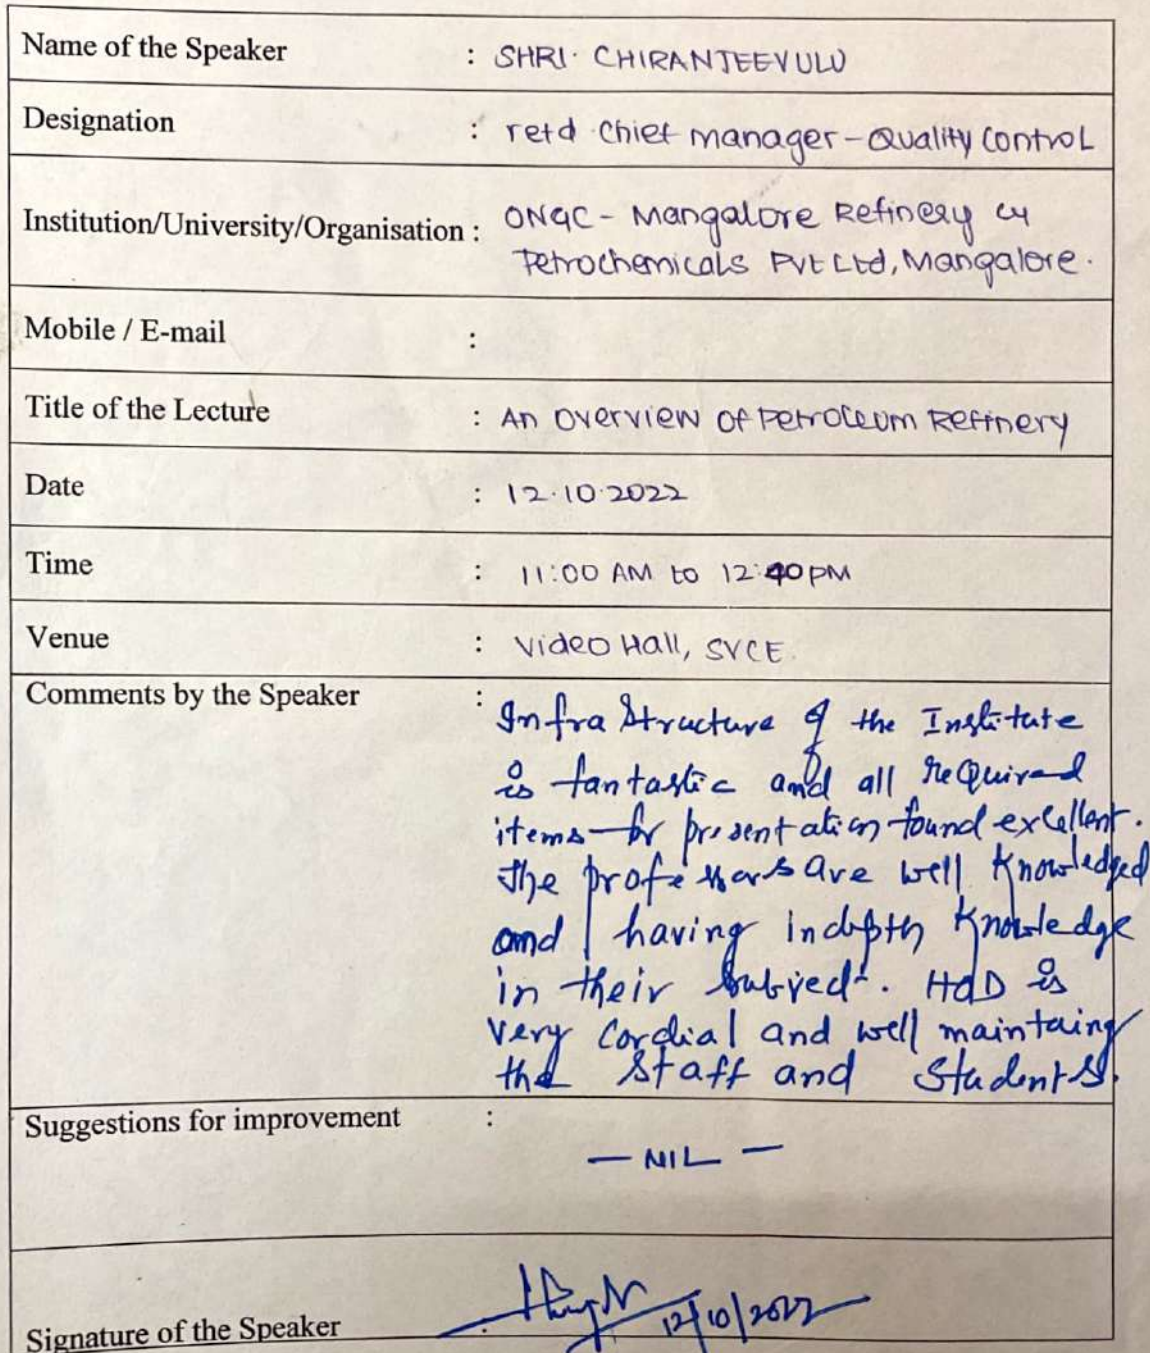 Name of the Speaker : SHRI. CHIRANJEEVULU
Designation : retd chief manager - Quality control
Institution/University/Organisation : ONGC - Mangalore Refinery &
Petrochemicals Pvt Ltd, Mangalore.
Mobile / E-mail :
Title of the Lecture : An overview of Petroleum Refinery
Date : 12.10.2022
Time : 11:00 AM to 12:40 PM
Venue : Video Hall, SVCE.
Comments by the Speaker : Infra structure of the Institute
is fantastic and all required
items for presentation found excellent.
The professors are well knowledged
and having indepth knowledge
in their subject. HOD is
very cordial and well maintaing
the staff and students.
Suggestions for improvement :
- NIL -
Signature of the Speaker : 12/10/2022